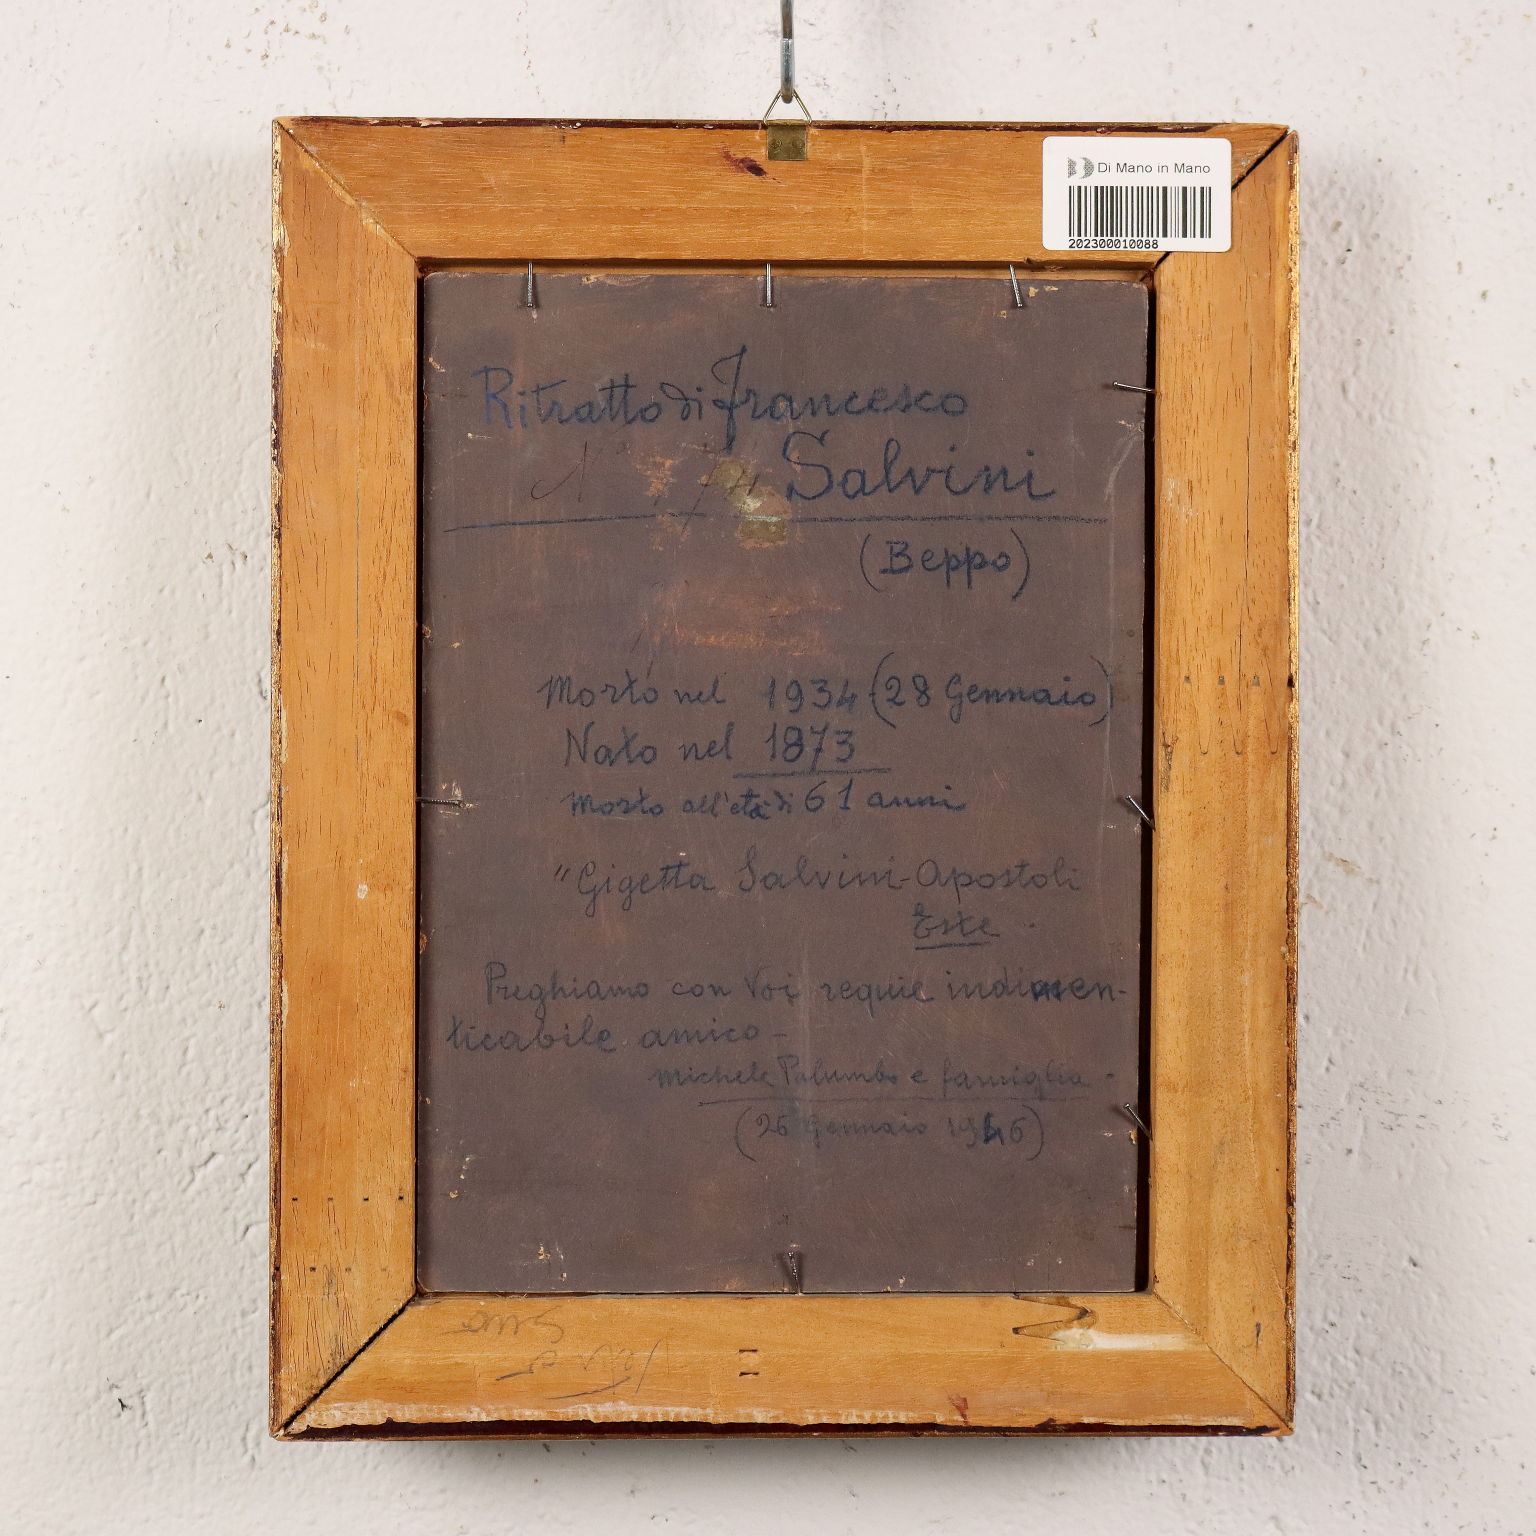 Di Mano in Mano
202300010088
Ritratto di Francesco
Salvini
(Beppo)
Morto nel 1934 (28 Gennaio)
Nato nel 1873
Morto all'età di 61 anni
"Gigetta Salvini-Apostoli
Este
Preghiamo con Voi requie indimen-
ticabile amico-
Michele Palumbo e famiglia-
(26 Gennaio 1946)